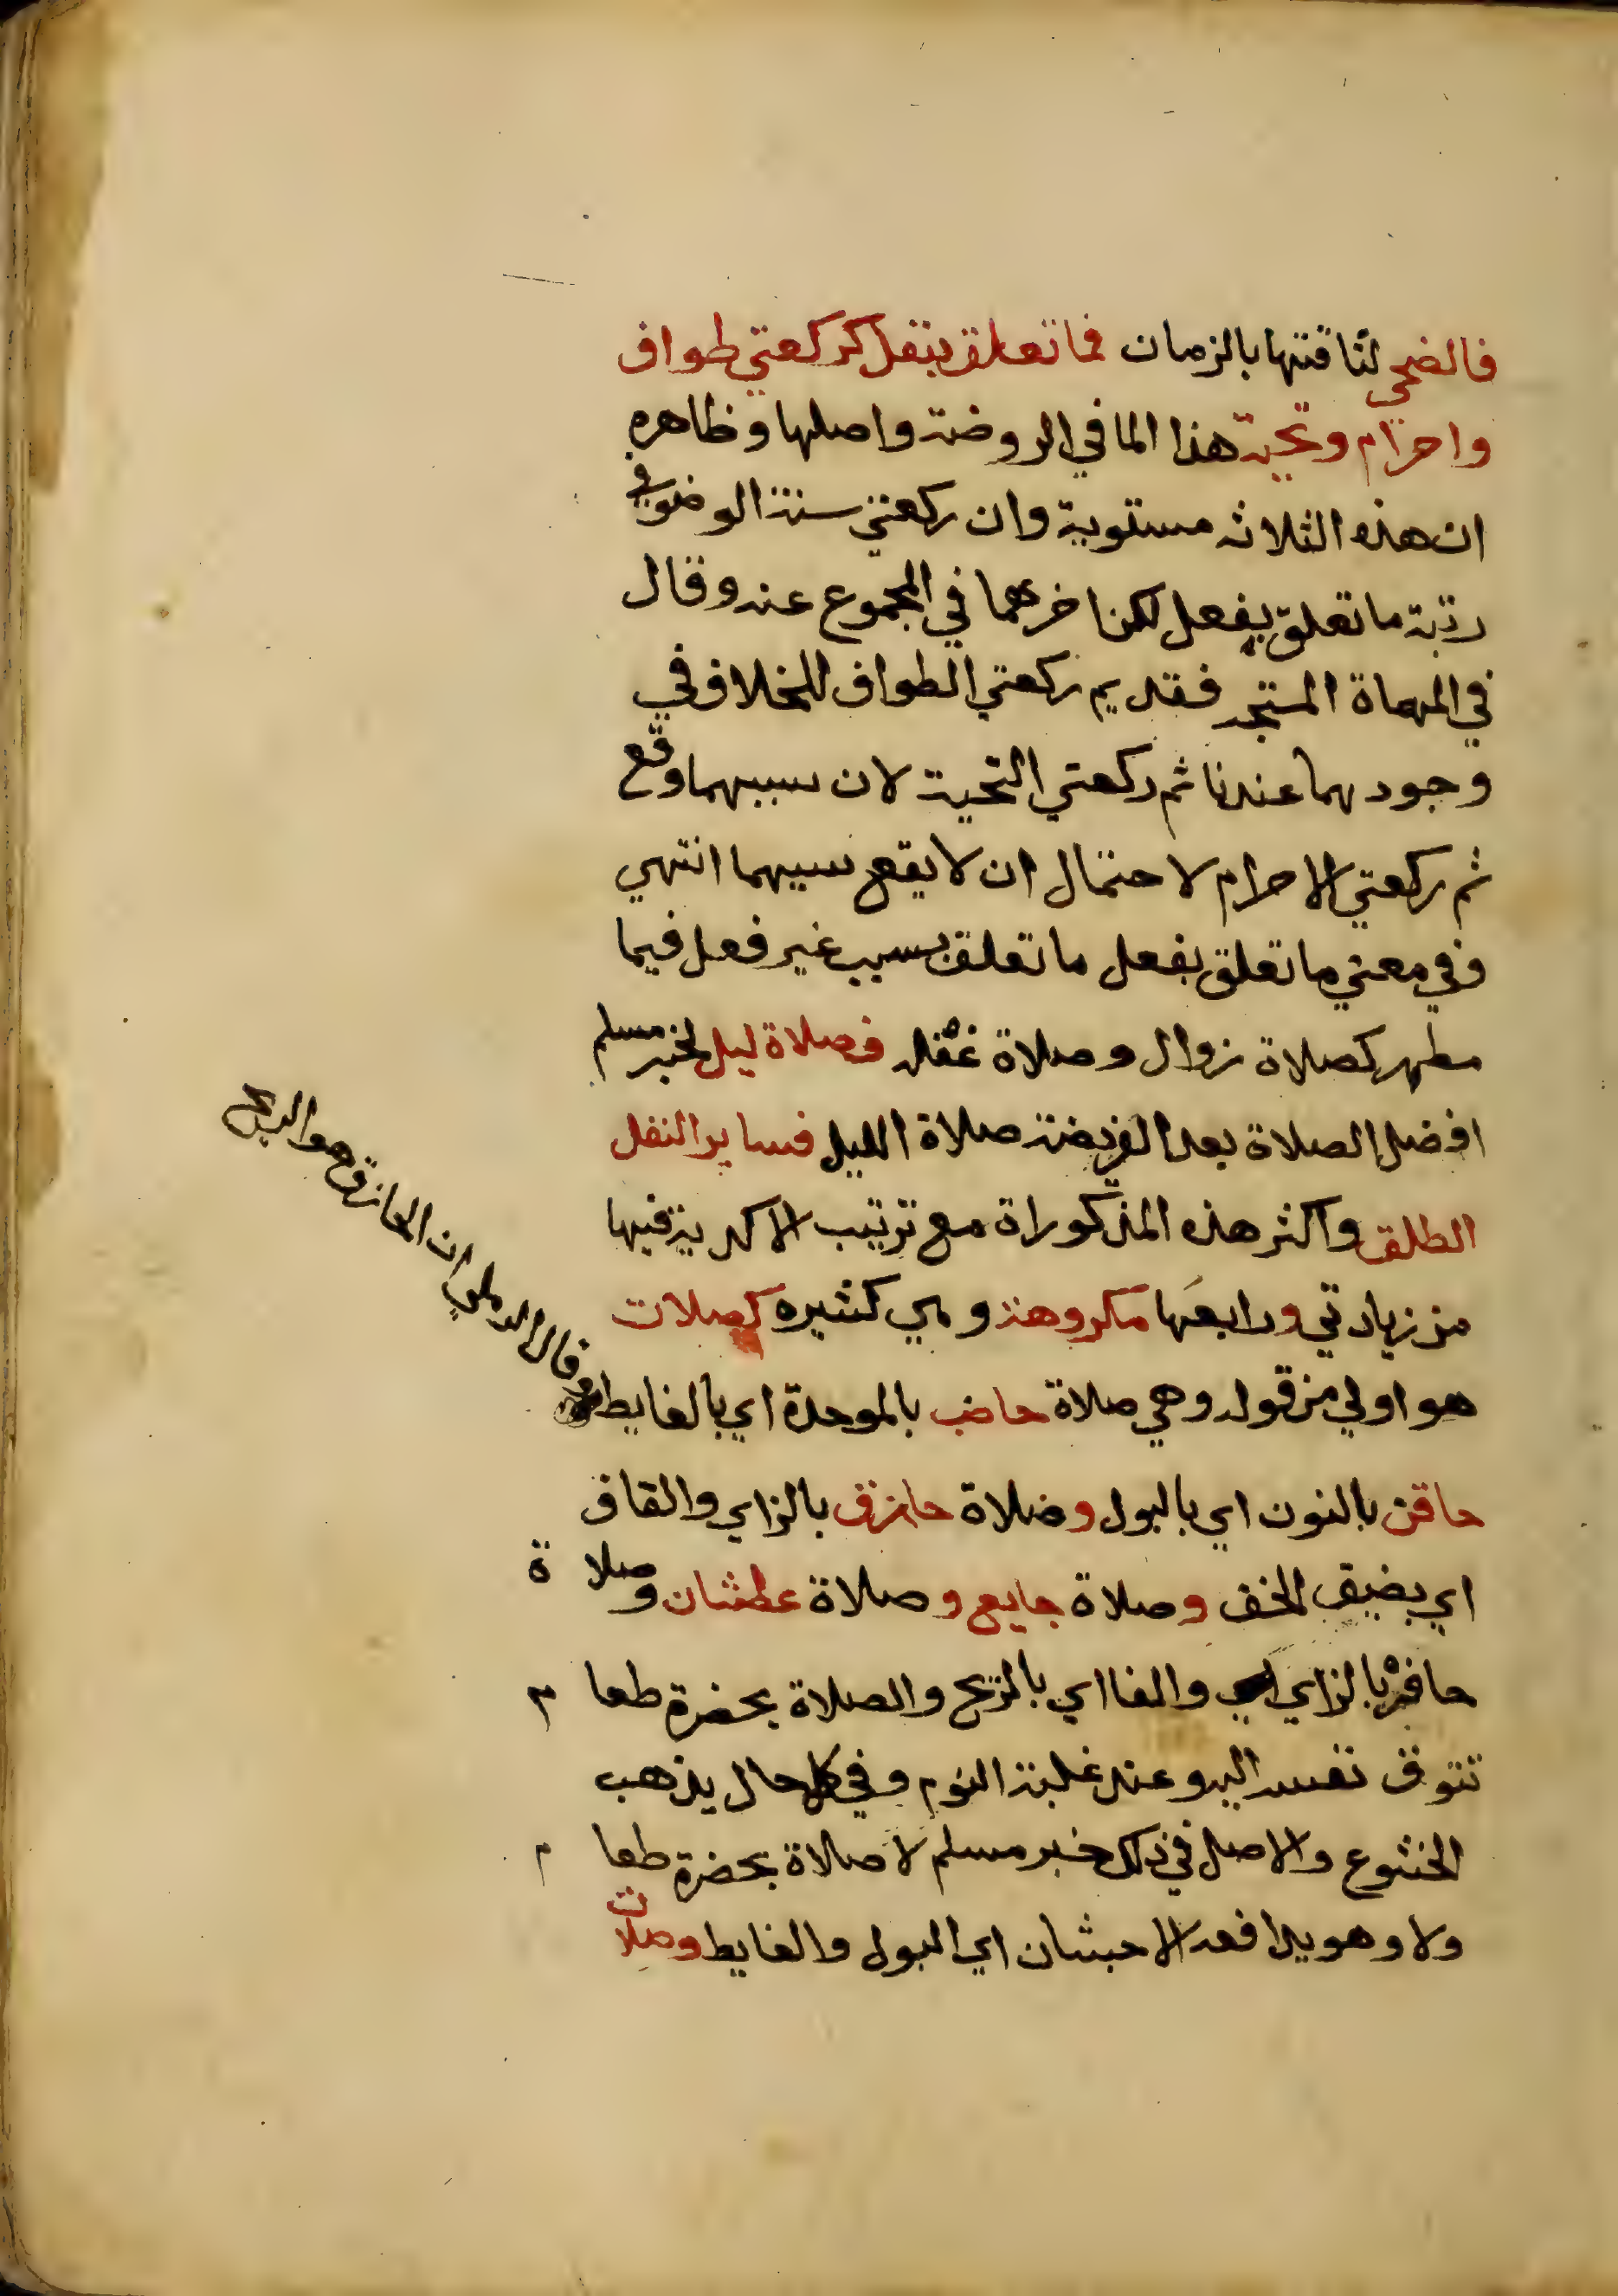 فالضحي لتاقتتها بالزمان فما تعلق بنفل كركعتي طواف
واحرام وتحية هذا الما في الروضة واصلها وظاهره
ان هذه الثلاثه مستوية وان ركعتي سنة الوضو في
رتبة ما تعلق بفعل لكن اخرهما في المجموع عنه وقال
في المهماة المتجه فقديم ركعتي الطواف للخلاف في
وجودبهما عندنا ثم ركعتي التحية لان سببهما وقع
ثم ركعتي الاحرام لاحتمال ان لا يقع سببهما انتهي
وفي معني ما تعلق بفعل ما تعلق بسبب غير فعل فيما
مظهر كصلاة زوال وصلاة غفله فصلاة ليل لخبر مسلم
افضل الصلاة بعد الفريضة صلاة الليل فساير النفل
الطلق واكثر هذه المذكوراة مع ترتيب الاكد يتر فيها
من زيادتي ورابعها مكروهة وهي كثيره كصلات
هو اولي من قوله وهي صلاة حاضب بالموحدة اي بالغايط
حاقن بالنون اي بالبول وصلاة حازق بالزاي والقاف
اي بضيق الخف وصلاة جايع وصلاة عطشان وصلاة
حافز بالزاي والفا اي بالريح والصلاة بحضرة طعام
تتوق نفسه اليه وعند غلبة النوم وفي كل حال يذهب
الخشوع والاصل في ذلك خبر مسلم لا صلاة بحضرة طعام
ولا وهو يدافعه الاخبثان اي البول والغايط وصلات
قال الرملي ان الحازق هو الريح